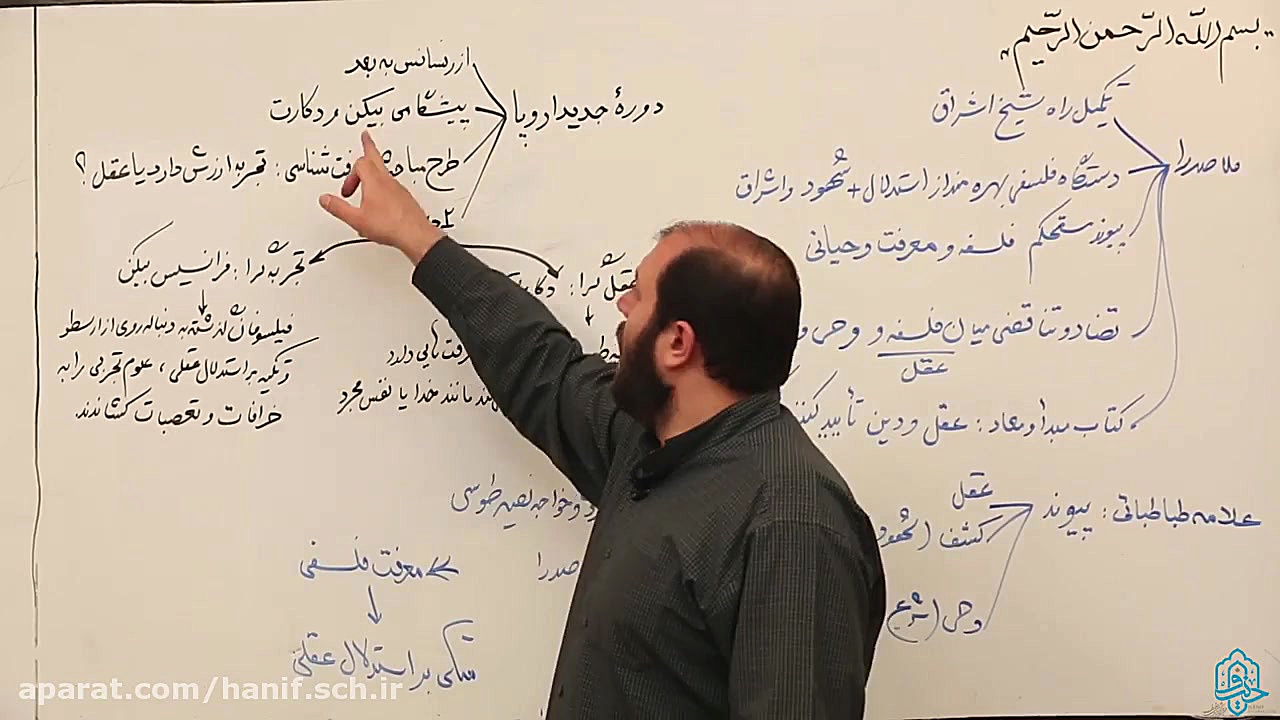 بسم اللّه الرّحمن الرّحیم
ملاصدرا
تکمیل راه شیخ اشراق
دستگاه فلسفی بهره مند از استدلال + شهود و اشراق
پیوند مستحکم فلسفه و معرفت وحیانی
تضاد و تناقضی میان فلسفه و وحی و
عقل
کتاب مبدأ و معاد: عقل و دین تأیید
علامه طباطبائی: پیوند
عقل
کشف (شهود
وحی (شرع)
دورهٔ جدید اروپا
از رنسانس به بعد
پیشگامی بیکن و دکارت
طرح شناسی: تجربه ارزش دارد یا عقل؟
۲
عقل گرا:
تجربه گرا: فرانسیس بیکن
فیلسوفان گذشته به دنباله روی از ارسطو
و تکیه بر استدلال عقلی، علوم تجربی را به
خرافات و تعصبات کشاندند.
دارد
مانند خدا یا نفس مجرد
و خواجه نصیر طوسی
صدرا
معرفت فلسفی
متکی بر استدلال عقلی
aparat.com/hanif.sch.ir